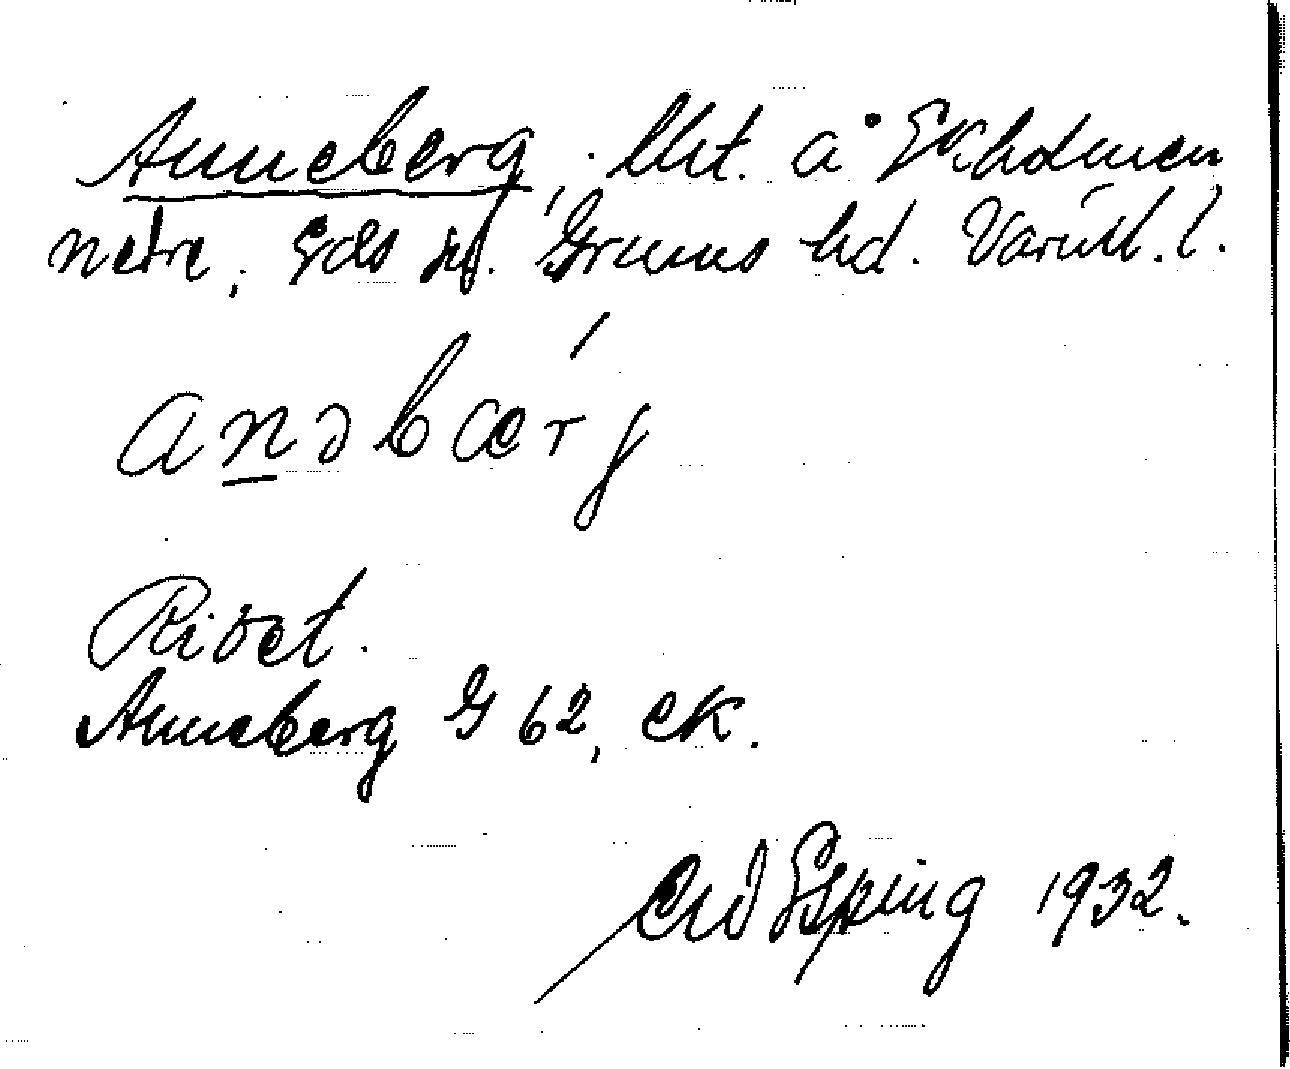 Anneberg, lht. å Ekholmen
nedre, Eds sn. Grums hd. Värml. l.
anəbæ´rj
Rivet.
Anneberg G 62, ek.
Esping 1932.